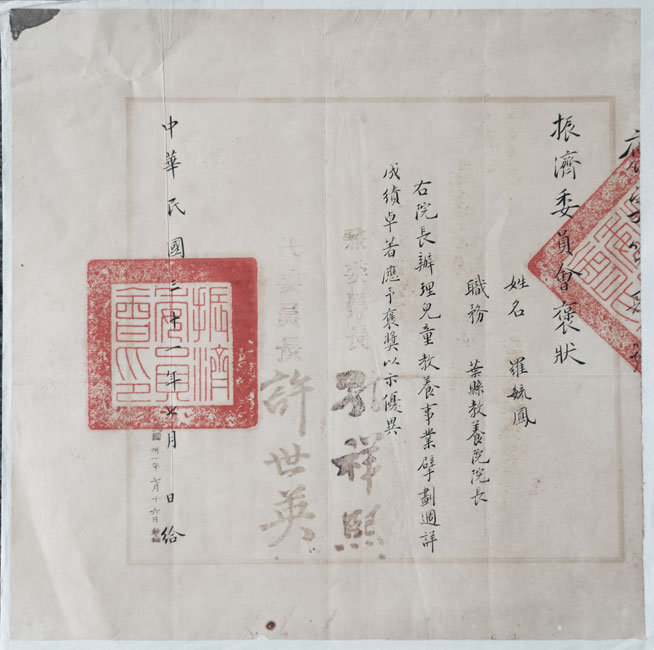 振濟委員會褒狀
姓名 羅毓鳳
職務 葉縣教養院院長
右院長辦理兒童教養事業擘劃週詳
成績卓著應予褒獎以示優異
兼委員長 孔祥熙
代委員長 許世英
中華民國三十一年七月 日給
振濟
委員
會印
國卅一年七月十六日